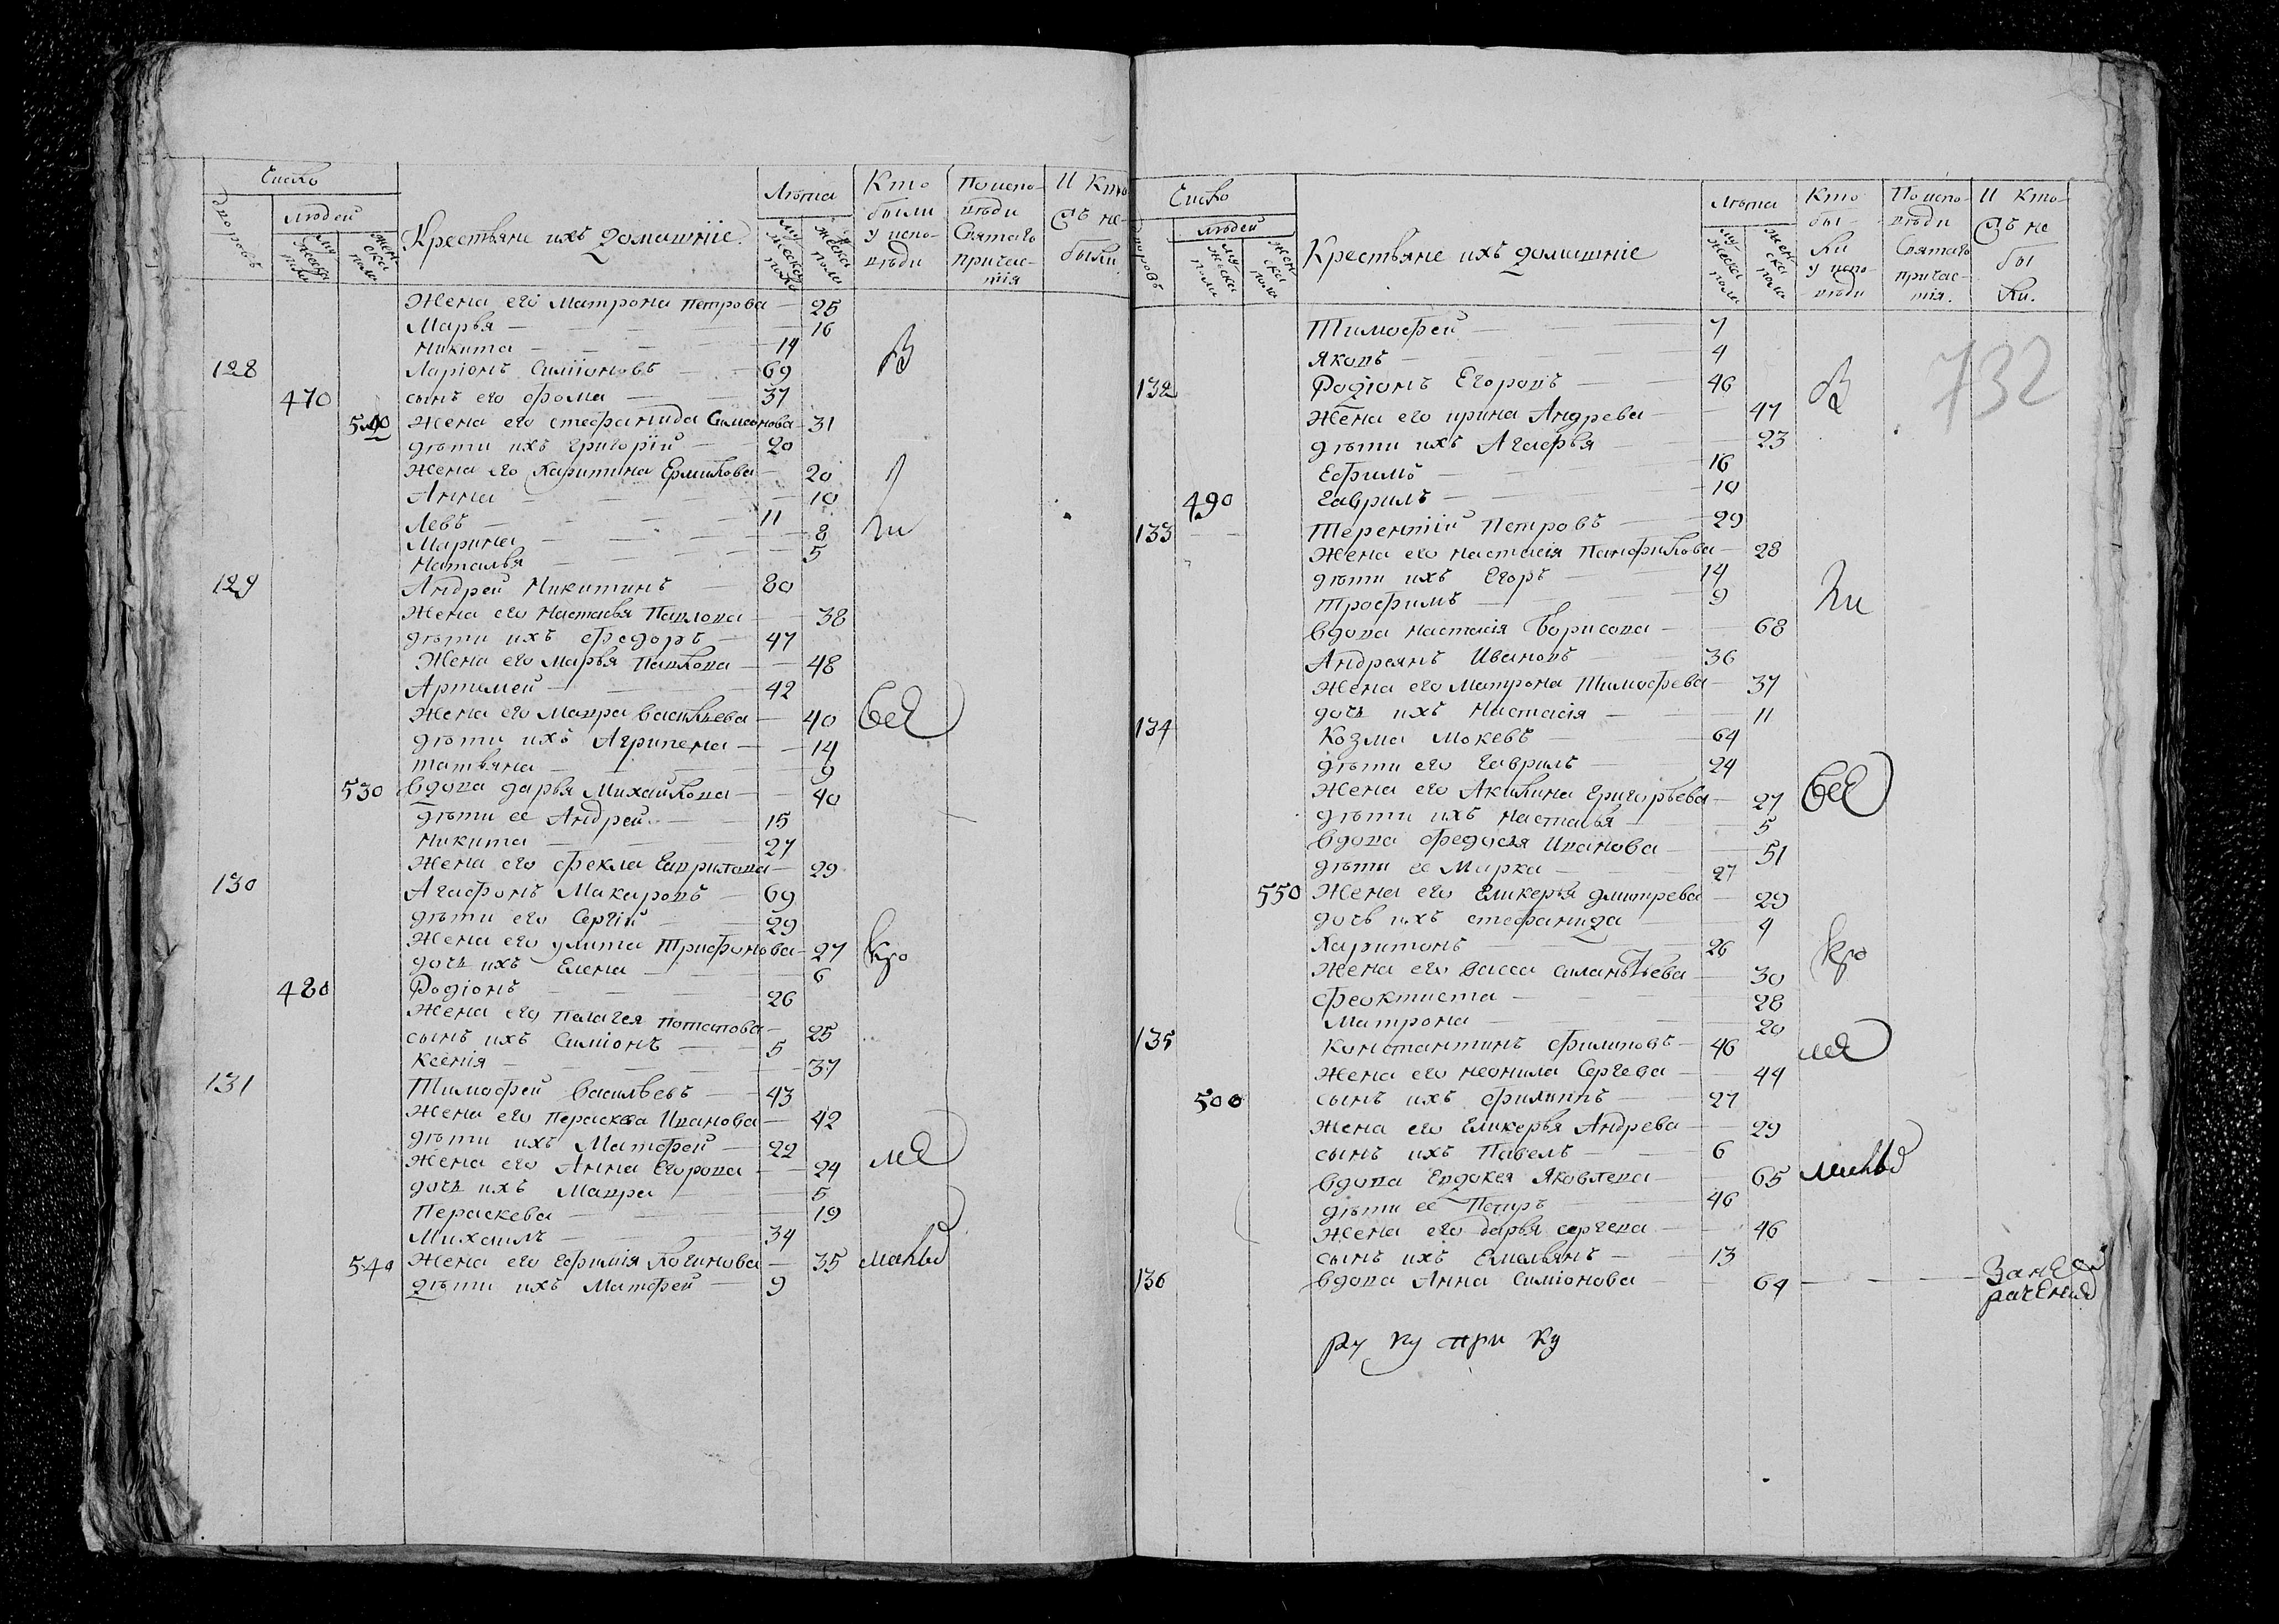 Число
Людей
Крестьяне ихъ домашнiе
Лѣта
Кто были у испо-вѣди
По испо-вѣди Святаго причас-тiя
И кто не были
Жена его Матрона Петрова — 25
Марья — 16
Никита — 14
128 Ларiонъ Симiоновъ — 69
470 сынъ его Фома — 37
Жена его Стефанида Симеонова — 31
дѣти ихъ Григорiй — 20
Жена его Харитина Ермилова — 20
Анна — 10
Левъ — 11
Марина — 8
Наталья — 5
129 Андрей Никитинъ — 80
Жена его Настасья Павлова — 38
дѣти ихъ Федоръ — 47
Жена его Марья Павлова — 48
Артемей — 42
Жена его Мавра Васильева — 40
дѣти ихъ Агрипена — 14
Татьяна — 9
530 вдова Дарья Михайлова — 40
дѣти ее Андрей — 15
Никита — 27
Жена его Фекла Гаврилова — 29
130 Агафонъ Макаровъ — 69
дѣти его Сергiй — 29
Жена его Улита Трифонова — 27
дочь ихъ Елена — 6
480 Родiонъ — 26
Жена его Пелагея Потапова — 25
сынъ ихъ Симiонъ — 5
Ксенiя — 37
131 Тимофей Васильевъ — 43
Жена его Параскева Иванова — 42
дѣти ихъ Матфей — 22
Жена его Анна Егорова — 24
дочь ихъ Мавра — 5
Пераскева — 19
Михаилъ — 34
540 Жена его Ефимiя Логинова — 35
дѣти ихъ Матфей — 9
Число
Людей
Крестьяне ихъ домашнiе
Лѣта
Кто бы-ли у испо-вѣди
По испо-вѣди Святаго причас-тiя.
И кто не бы ли.
732
Тимофей — 7
Яковъ — 4
132 Родiонъ Егоровъ — 46
Жена его Ирина Андрева — 47
дѣти ихъ Агафья — 23
Ефимъ — 16
490 Гаврилъ — 10
133 Терентiй Петровъ — 29
Жена его Настасiя Панфилова — 28
дѣти ихъ Егоръ — 14
Трофимъ — 9
вдова Настасiя Борисова — 68
Андреянъ Ивановъ — 36
Жена его Матрона Тимофева — 37
дочь ихъ Настасiя — 11
134 Козма Мокевъ — 64
дѣти его Гаврилъ — 24
Жена его Акилина Григорьева — 27
дѣти ихъ Настасья — 5
вдова Федосiя Иванова — 51
дѣти ее Марка — 27
550 Жена его Гликерья Дмитрева — 29
дочь ихъ Стефанида — 4
Харитонъ — 26
Жена его Васса Силантьева — 30
Феоктиста — 28
Матрона — 20
135 Константинъ Филиповъ — 46
Жена его Неонила Сергева — 44
500 сынъ ихъ Филиппъ — 27
Жена его Гликерья Андрева — 29
сынъ ихъ Павелъ — 6
вдова Евдокея Яковлева — 65
дѣти ее Петръ — 46
Жена его Дарья Сергева — 46
сынъ ихъ Емельянъ — 13
136 вдова Анна Симiонова — 64
За не рачениемъ
ру ку при ку